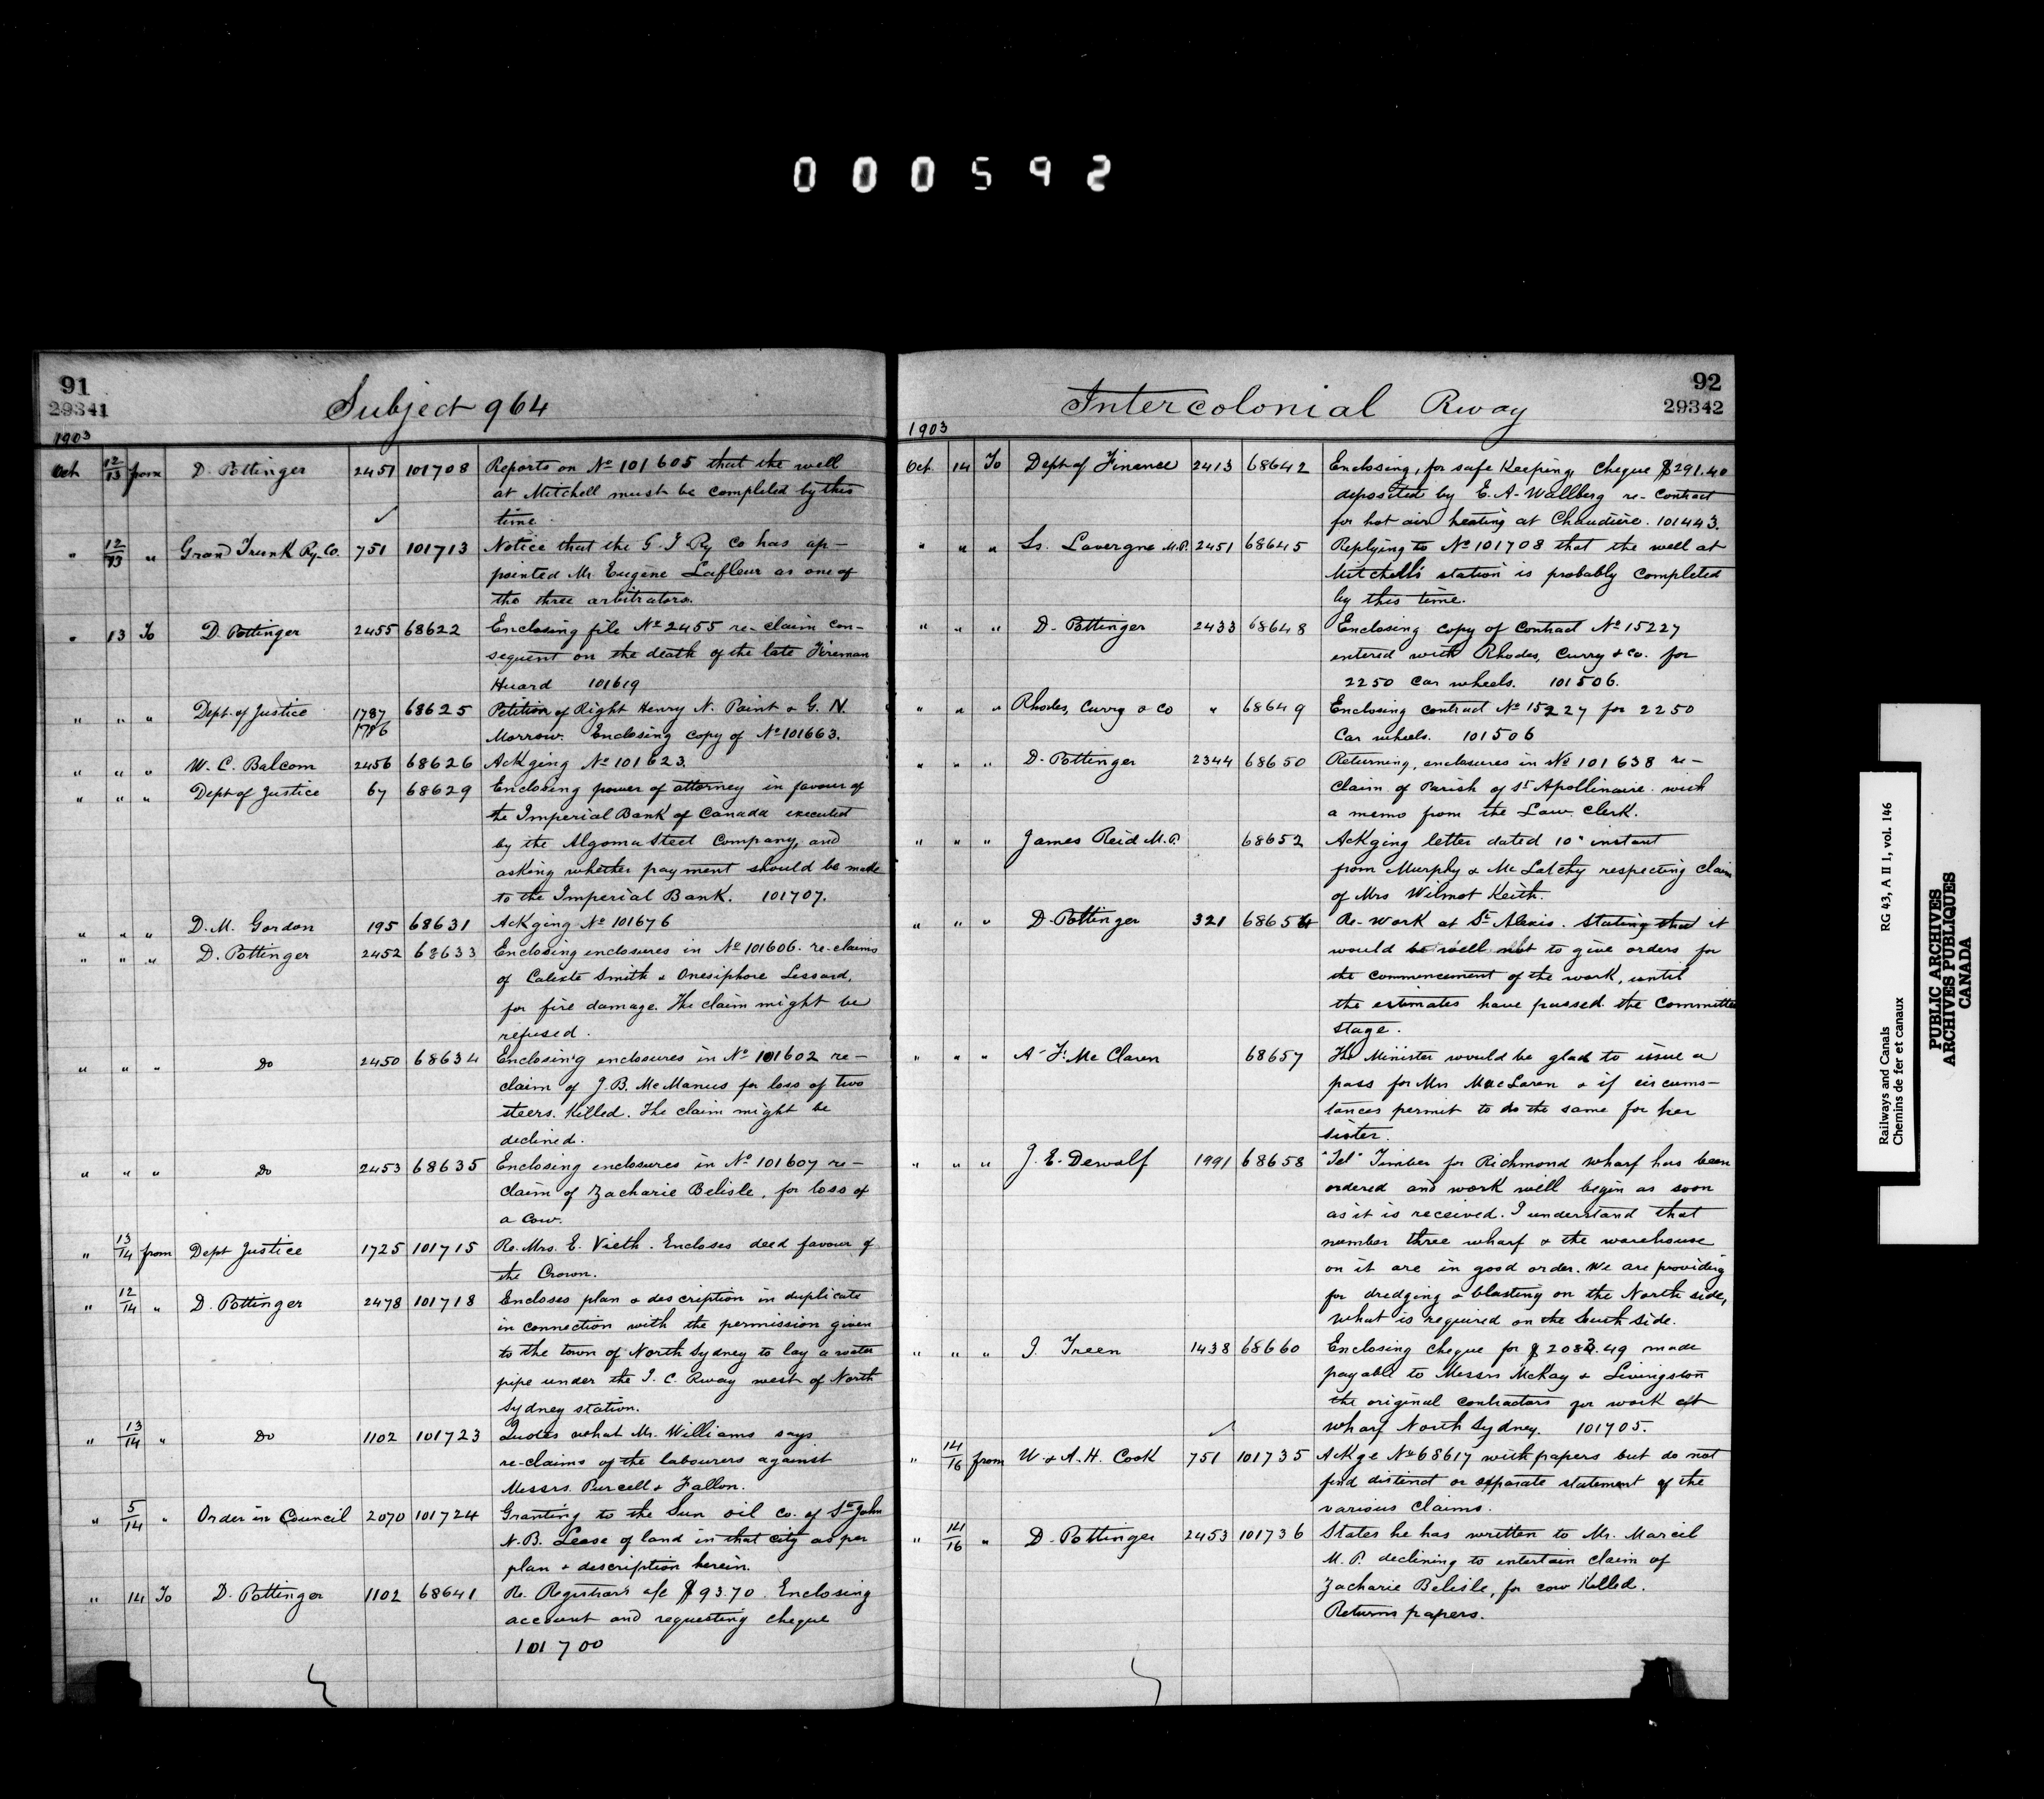 000592
91
29341
Subject 964
1903
Oct 12/13 from D. Pottinger 2451 101708 Reports on No 101605 that the well
at Mitchell must be completed by this
time.
" 12/13 " Grand Trunk Ry. Co. 751 101713 Notice that the G. T. Ry Co has ap-
pointed Mr. Eugène Lafleur as one of
the three arbitrators.
" 13 To D. Pottinger 2455 68622 Enclosing file No 2455 re-claim con-
sequent on the death of the late Fireman
Huard 101619
" " " Dept. of Justice 1787 68625 Petition of Right Henry N. Paint & G. N.
1786 Morrow. Enclosing copy of No 101663.
" " " W. C. Balcom 2456 68626 Ackging No 101623.
" " " Dept of Justice 67 68629 Enclosing power of attorney in favour of
the Imperial Bank of Canada executed
by the Algoma Steel Company, and
asking whether payment should be made
to the Imperial Bank. 101707.
" " " D. M. Gordon 195 68631 Ackging No 101676
" " " D. Pottinger 2452 68633 Enclosing enclosures in No 101606. re-claims
of Calixte Smith & Onesiphore Lessard,
for fire damage. The claim might be
refused.
" " " Do 2450 68634 Enclosing enclosures in No 101602 re-
claim of J. B. McManus for loss of two
steers. Killed. The claim might be
declined.
" " " Do 2453 68635 Enclosing enclosures in No 101607 re-
claim of Zacharie Belisle, for loss of
a cow.
" 13/14 from Dept Justice 1725 101715 Re. Mrs. E. Vieth. Encloses deed favour of
the Crown.
" 12/14 " D. Pottinger 2478 101718 Encloses plan & description in duplicate
in connection with the permission given
to the town of North Sydney to lay a water
pipe under the I. C. Rway west of North
Sydney station.
" 13/14 " Do 1102 101723 Quotes what Mr. Williams says
re-claims of the labourers against
Messrs. Purcell & Fallon.
" 5/14 " Order in Council 2070 101724 Granting to the Sun oil Co. of St John
N.B. Lease of land in that city as per
plan & description herein.
" 14 To D. Pottinger 1102 68641 Re. Registrar's a/c $93.70. Enclosing
account and requesting cheque
101700
92
29342
Intercolonial Rway
1903
Oct. 14 To Dept of Finance 2413 68642 Enclosing, for safe Keeping, Cheque $291.40
deposited by E. A. Wallberg re-contract
for hot air heating at Chaudière. 101443.
" " " Ls. Lavergne M.P. 2451 68645 Replying to No 101708 that the well at
Mitchell's station is probably completed
by this time.
" " " D. Pottinger 2433 68648 Enclosing copy of Contract No 15227
entered with Rhodes, Curry & Co. for
2250 Car wheels. 101506.
" " " Rhodes, Curry & Co " 68649 Enclosing contract No 15227 for 2250
Car wheels. 101506
" " " D. Pottinger 2344 68650 Returning, enclosures in No 101638 re-
claim of Parish of St Apollinaire with
a memo from the Law Clerk.
" " " James Reid M.P. 68652 Ackging letter dated 10" instant
from Murphy & McLatchy respecting claim
of Mrs Wilmot Keith.
" " " D. Pottinger 321 68654 Re- Work at St Alexis. Stating that it
would be well not to give orders for
the commencement of the work, until
the estimates have passed the Committee
stage.
" " " A. F. McClaren 68657 The Minister would be glad to issue a
pass for Mrs MacLaren & if circums-
tances permit to do the same for her
sister.
" " " J. E. Dewolf 1991 68658 "Tel" Timber for Richmond wharf has been
ordered and work will begin as soon
as it is received. I understand that
number three wharf & the warehouse
on it are in good order. We are providing
for dredging & blasting on the North side,
what is required on the South side.
" " " J. Treen 1438 68660 Enclosing cheque for $2083.49 made
payable to Messrs McKay & Livingston
the original contractors for work at
wharf North Sydney. 101705.
" 14/16 from W. & A. H. Cook 751 101735 Ackge No 68617 with papers but do not
find distinct or separate statement of the
various claims.
" 14/16 " D. Pottinger 2453 101736 States he has written to Mr. Marcil
M. P. declining to entertain claim of
Zacharie Belisle, for cow Killed.
Returns papers.
Railways and Canals RG 43, A II 1, vol. 146
Chemins de fer et canaux
PUBLIC ARCHIVES
ARCHIVES PUBLIQUES
CANADA